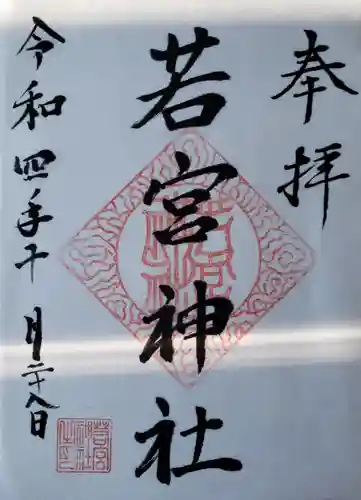 奉拝
若宮神社
令和四年十月二十八日
若宮
神社